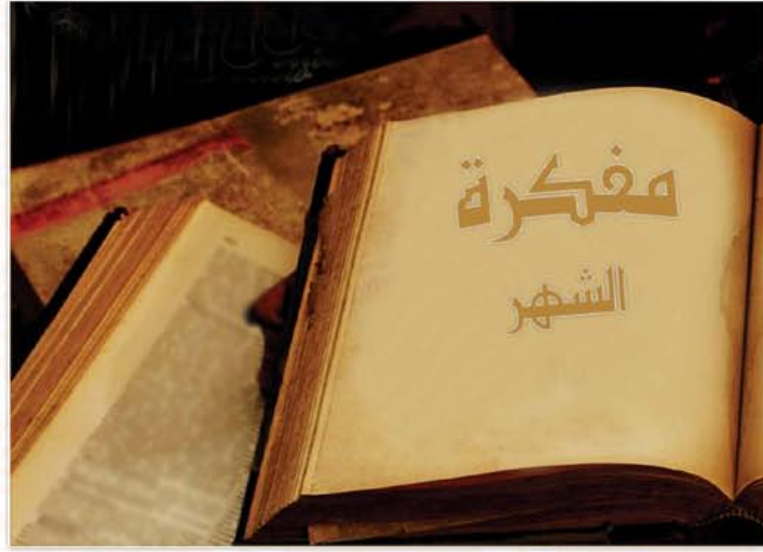 مفكرة
الشهر